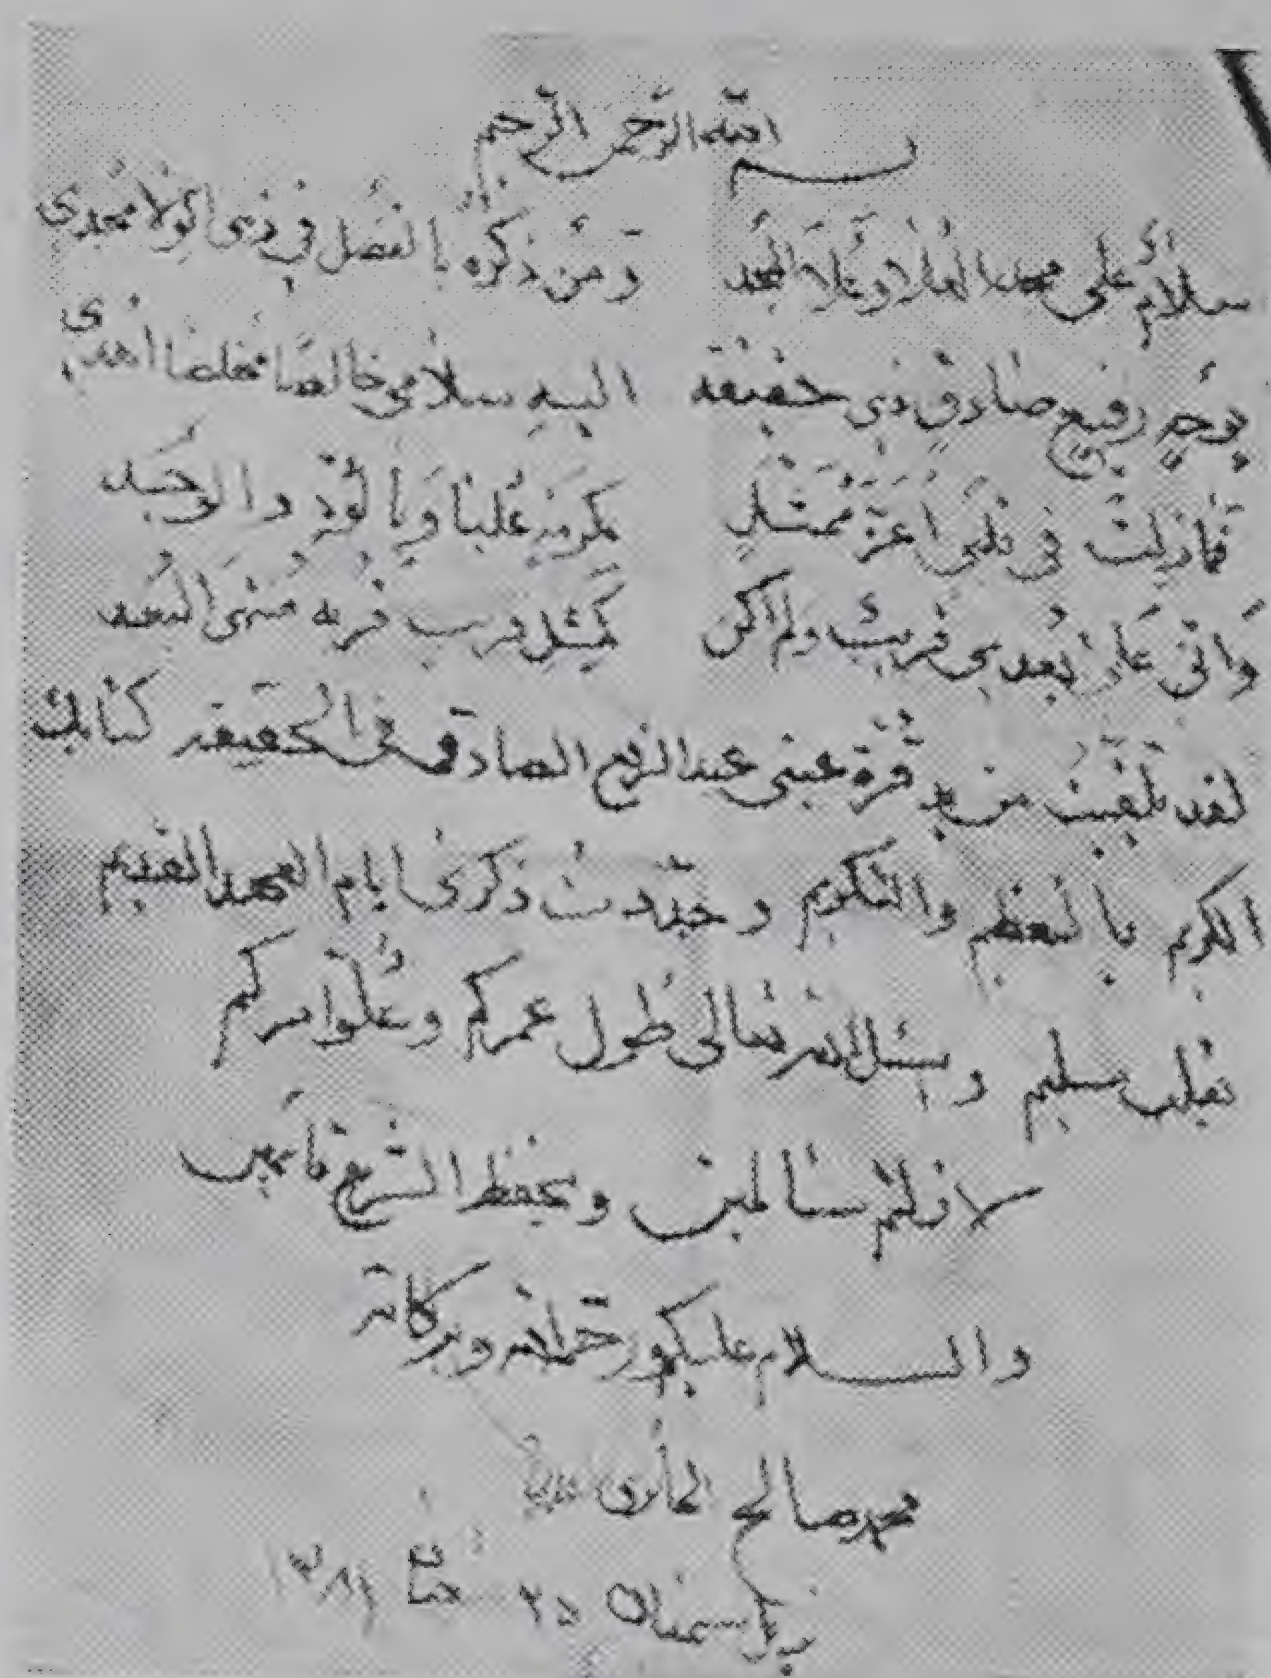 بسم الله الرحمن الرحيم
سلام على مجد العلا وعلا المجد ومن ذكره بالفضل في ذي الولا مجدي
رفيع صادق ذي حقيقة اليه سلامي خالصا مخلصا اهدي
في قلبي اعز ممثل علينا وبالود والوجد
واني بعد بي قريب ولم اكن كمثل قريب قربه منتهى البعد
لقد تلقيت من يد قرة عيني عبدالرفيع الصادق في الحقيقة كتابك
الكريم بالتعظيم والتكريم وجددت ذكرى ايام العهد القديم
بقلب سليم وسئل الله تعالى طول عمركم وعلو امركم
لا زلتم سالمين وبحفظ الشرع قائمين
والسلام عليكم ورحمة الله وبركاته
محمد صالح الحائري
سمنان ٢٥